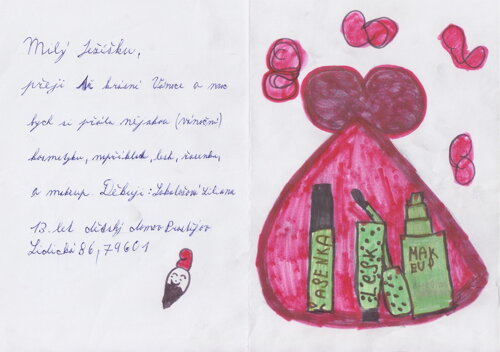 Milý Ježíšku,
přeji Ti krásné Vánoce a moc
bych si přála nějakou (vánoční)
kosmetiku, například lesk, řasenku,
a makeup. Děkuji:
13. let dětský domov Prostějov
Lidická 86, 79601
ŘASENKA
LESK
MAK
EUP